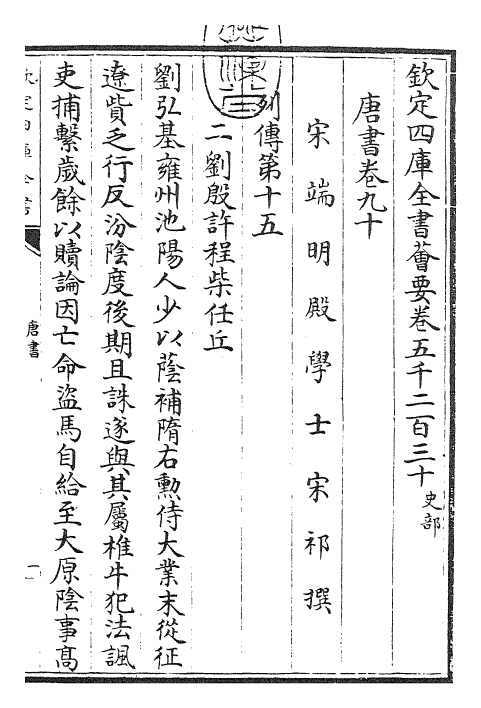 欽定四庫全書薈要卷五千二百三十 史部
唐書卷九十
宋端明殿學士宋祁撰
列傳第十五
二劉殷許程柴任丘
劉弘基雍州池陽人少以蔭補隋右勲侍大業末從征
遼貲乏行反汾陰度後期且誅遂與其屬椎牛犯法諷
吏捕繫歲餘以贖論因亡命盜馬自給至大原陰事髙
唐書